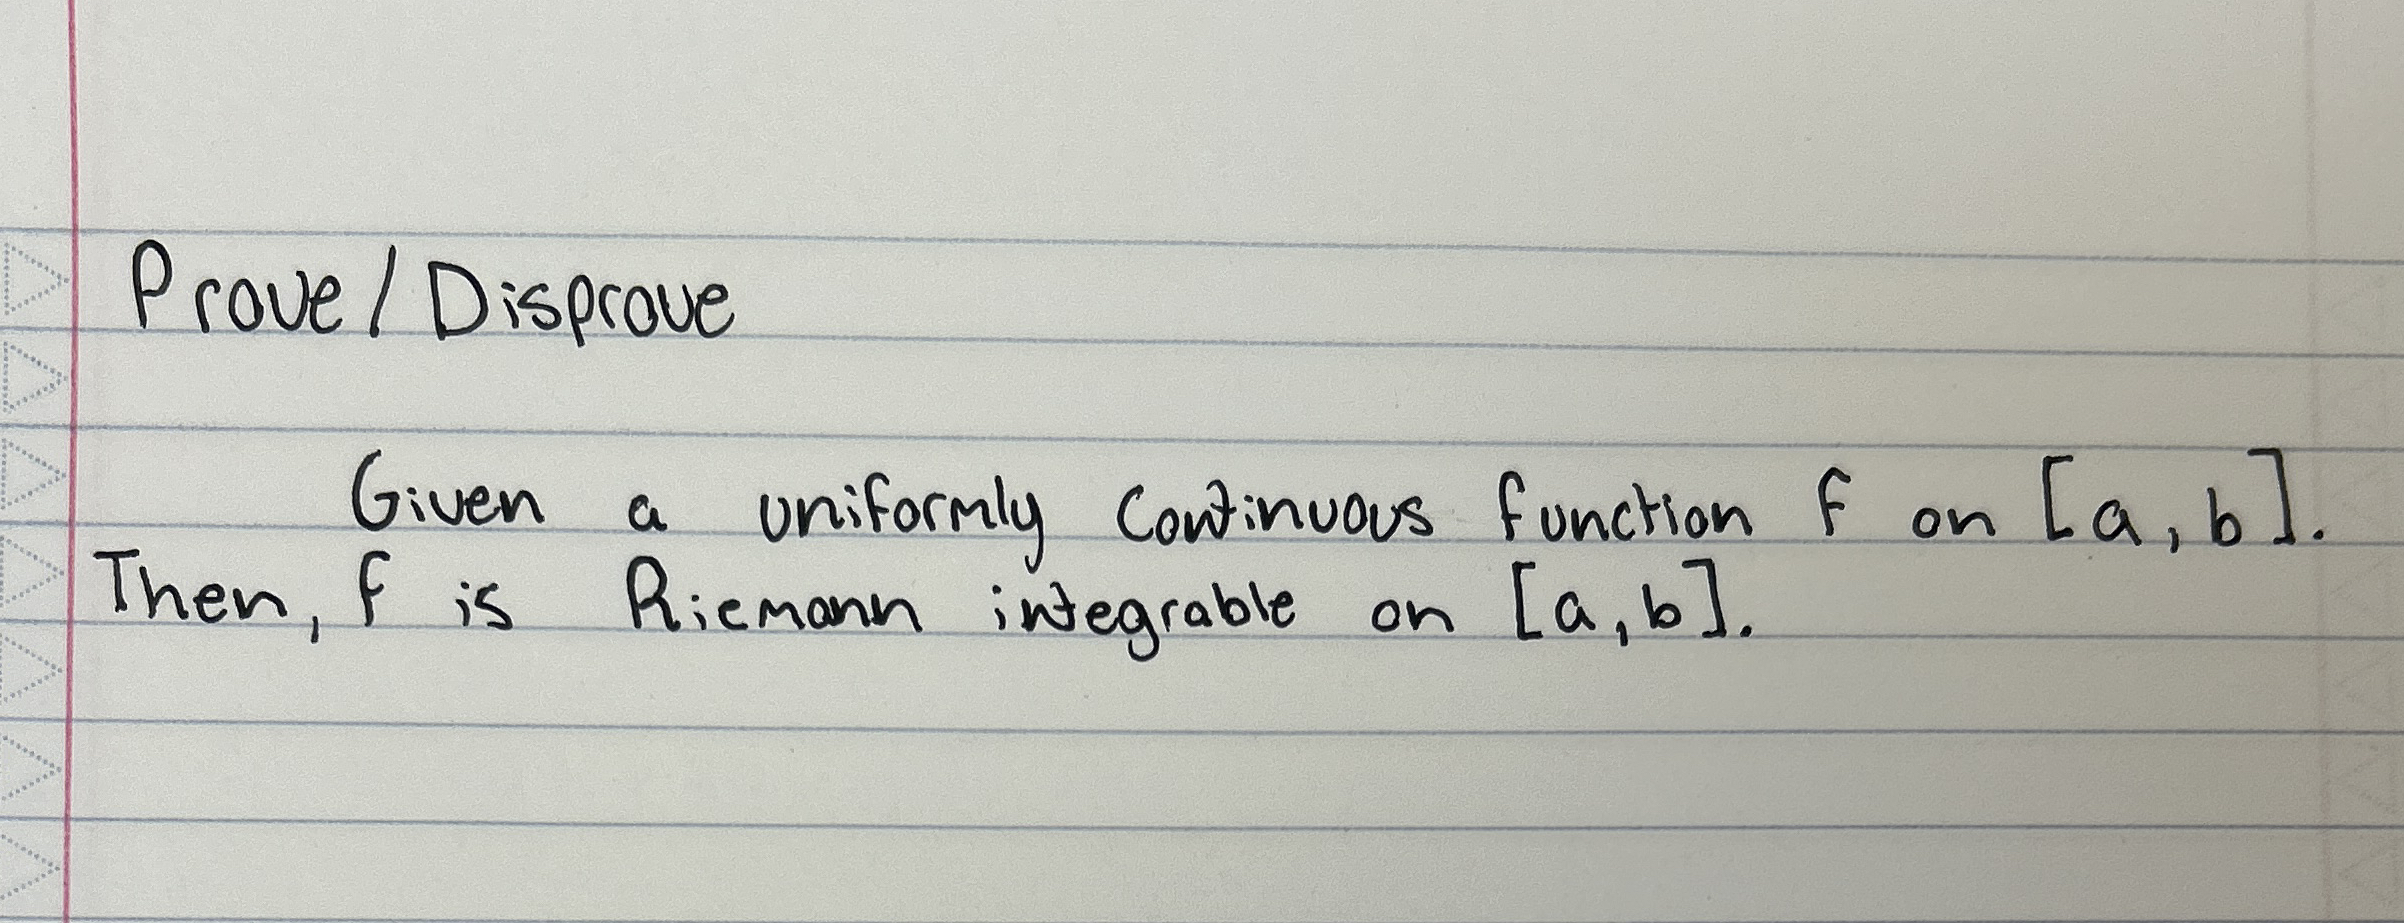 Prove/Disprove
Given a uniformly continuous function f on [a,b].
Then, f is Riemann integrable on [a,b].